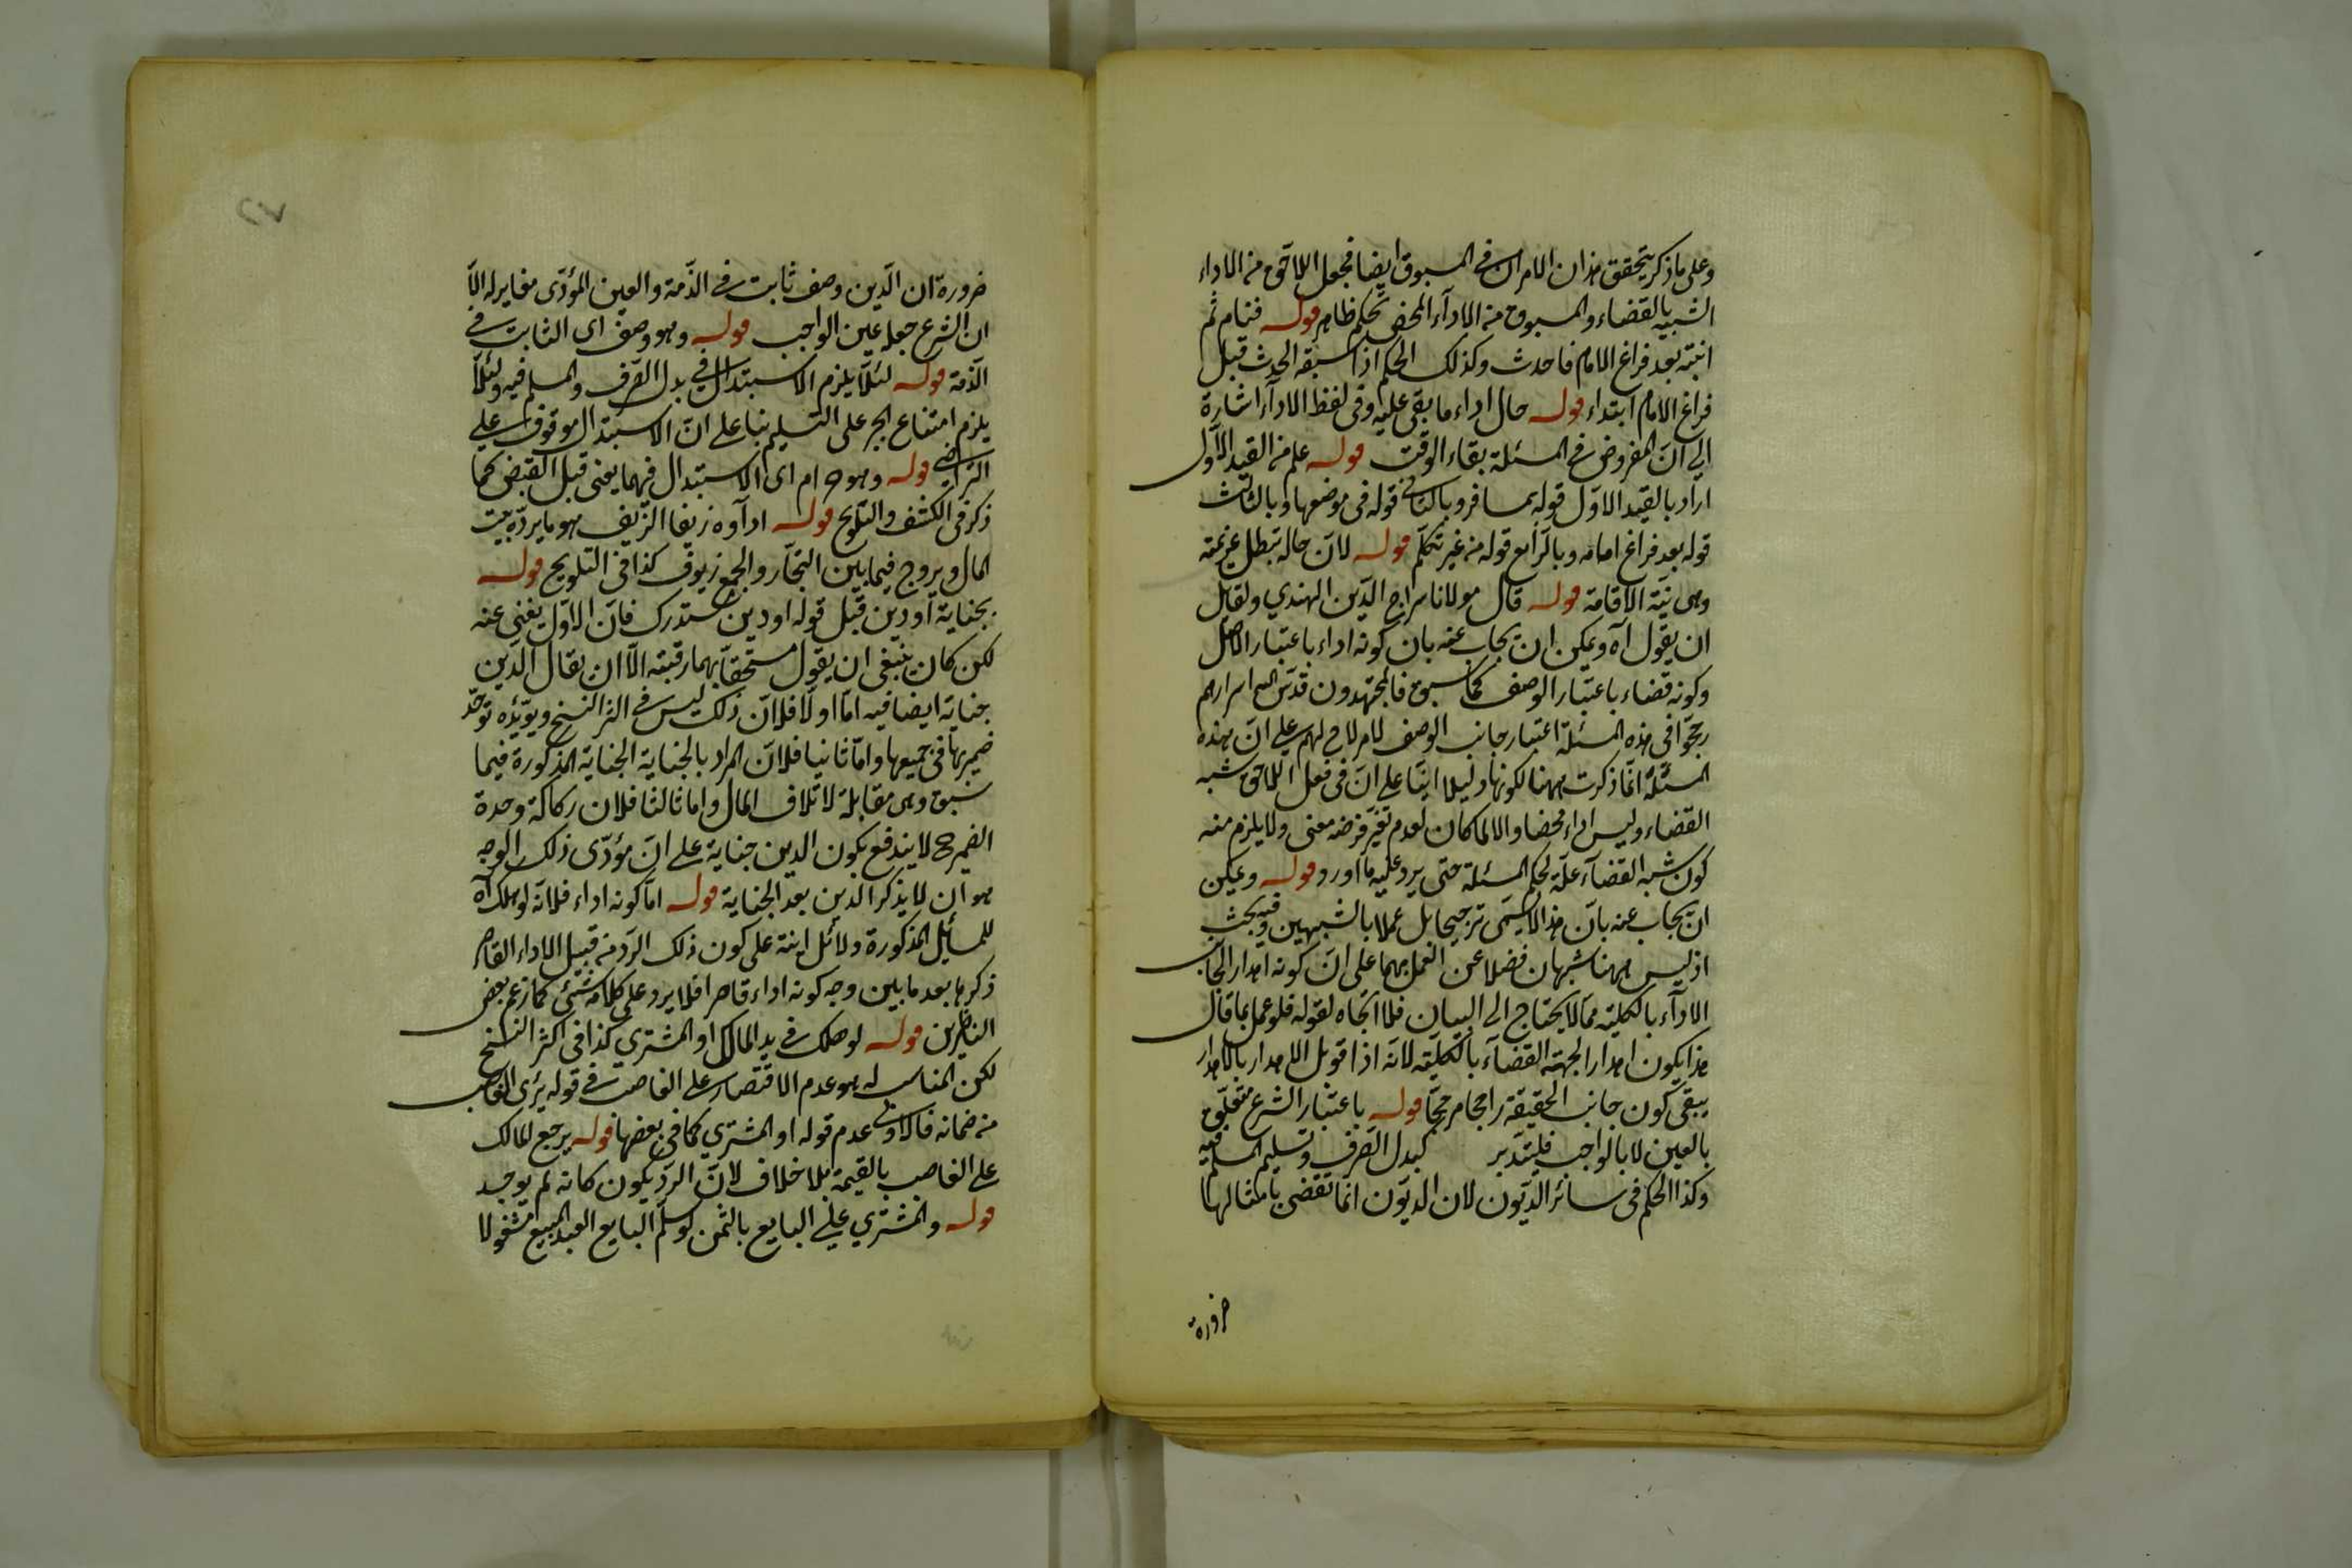 وعلى ما ذكر يتحقق هذان الامران في المسبوق ايضا فجعل اللاحق من الاداء
الشبيه بالقضاء والمسبوق من الادآء المحض تحكم ظاهر قوله فنام ثم
انتبه بعد فراغ الامام فاحدث وكذلك الحكم اذا سبقه الحدث قبل
فراغ الامام ابتداء قوله حال اداء ما بقى عليه وفى لفظ الادآء اشارة
الى انّ المفروض في المسئلة بقاء الوقت قوله علم من القيد الاوّل
اراد بالقيد الاوّل قوله بمسافر وبالثانى قوله فى موضعها وبالثالث
قوله بعد فراغ امامه وبالرّابع قوله من غير تكلّم قوله لانّ حاله تبطل عزيمته
وهى نيّة الاقامة قوله قال مولانا سراج الدّين الهندي ولقايل
ان يقول آه ويمكن ان يجاب عنه بان كونه اداء باعتبار الاصل
وكونه قضاء باعتبار الوصف كما سبق فالمجتهدون قدّس الله اسرارهم
رجّحوا فى هذه المسئلة اعتبار جانب الوصف لامر لاح لهم على انّ هذه
المسئلة انّما ذكرت ههنا لكونها دليلا انيّا على انّ فى فعل اللاحق شبه
القضاء وليس اداء محضا والا لما كان لعدم تغيّر فرضه معنى ولا يلزم منه
كون شبه القضآء علّة لحكم المسئلة حتى يرد عليه ما اورد قوله ويمكن
ان يجاب عنه بانّ هذا لا يسمّى ترجيحا بل عملا بالشبهين وفيه بحث
اذ ليس ههنا شبهان فضلا عن العمل بهما على انّ كونه اهدار الجانب
الادآء بالكلية ممّا لا يحتاج الى البيان فلا اتجاه لقوله فلو عمل بما قال
هذا يكون اهدار الجهة القضآء بالكليّة لانّه اذا قوبل الاهدار بالاهدار
يبقى كون جانب الحقيقة راجحا مرجّحا قوله باعتبار الشرع متعلّق
بالعين لا بالواجب فليتدبر كبدل الصّرف وتسليم المسلم فيه
وكذا الحكم فى سائر الدّيون لان الديّون انّما تقضى بامثالها
ضرورة
ضرورة ان الدّين وصف ثابت في الذّمة والعين المؤدّى مغاير له الاّ
ان الشرع جعله عين الواجب قوله وهو وصف اى الثابت في
الذّمة قوله لئلاّ يلزم الاستبدال في بدل الصّرف والمسلم فيه ولئلاّ
يلزم امتناع الجبر على التسليم بناء على انّ الاستبدال موقوف على
التراضى قوله وهو حرام اى الاستبدال فيهما يعنى قبل القبض كما
ذكر فى الكشف والتلويح قوله ادآؤه زيفا الزّيف هو ما يردّه بيت
المال ويروج فيما بين التجّار والجمع زيوف كذا فى التلويح قوله
بجناية او دين قبل قوله او دين مستدرك فانّ الاوّل يغنى عنه
لكن كان ينبغى ان يقول مستحقا بهما رقبته الاّ ان يقال الدّين
جناية ايضا فيه امّا اولا فلانّ ذلك ليس في اكثر النسخ ويؤيّده توحّد
ضميريها فى جميعها وامّا ثانيا فلانّ المراد بالجناية الجناية المذكورة فيما
سبق وهى مقابلة لاتلاف المال واما ثالثا فلان ركاكة وحدة
الضمير ح لا يندفع بكون الدين جناية على انّ مؤدّى ذلك الوجه
هو ان لا يذكر الدين بعد الجناية قوله امّا كونه اداء فلانّه لو هلك آه
للمسائل المذكورة دلائل انية على كون ذلك الردّ من قبيل الاداء القاصر
ذكرها بعد ما بين وجه كونه اداء قاصرا فلا يرد على كلامه شئ كما زعم بعض
الناظرين قوله لو هلك في يد المالك او المشتري كذا فى اكثر النسخ
لكن المناسب له هو عدم الاقتصار على الغاصب في قوله يبرئ الغاصب
من ضمانه فالاولى عدم قوله او المشتري كما فى بعضها قوله يرجع المالك
على الغاصب بالقيمة بلا خلاف لانّ الردّ يكون كانه لم يوجد
قوله والمشتري على البايع بالثمن لو سلّم البايع العبد المبيع مشغولا